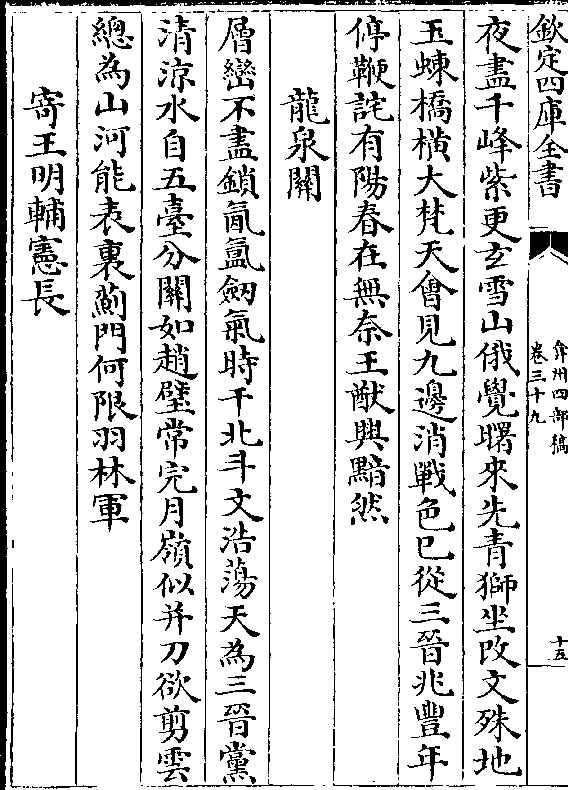 欽定四庫全書
弇州四部稿
卷三十九
十五
夜盡千峰紫更玄雪山俄覺曙來先青獅坐改文殊地
玉蝀橋橫大梵天會見九邊消戰色已從三晉兆豐年
停鞭詫有陽春在無奈王猷興黯然
龍泉關
層巒不盡鎖氤氳劒氣時干北斗文浩蕩天為三晉黨
清涼水自五臺分關如趙璧常完月嶺似并刀欲剪雲
總為山河能表裏薊門何限羽林軍
寄王明輔憲長